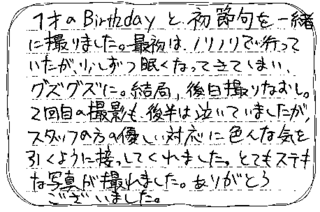 1才のBirthdayと初節句を一緒
に撮りました。最初は、ノリノリで行って
いたが、少しずつ眠くなってきてしまい、
グズグズに。結局、後日撮りなおし。
2回目の撮影も、後半は泣いていましたが
スタッフの方の優しい対応に色んな気を
引くように接してくれました。とてもステキ
な写真が撮れました。ありがとう
ございました。